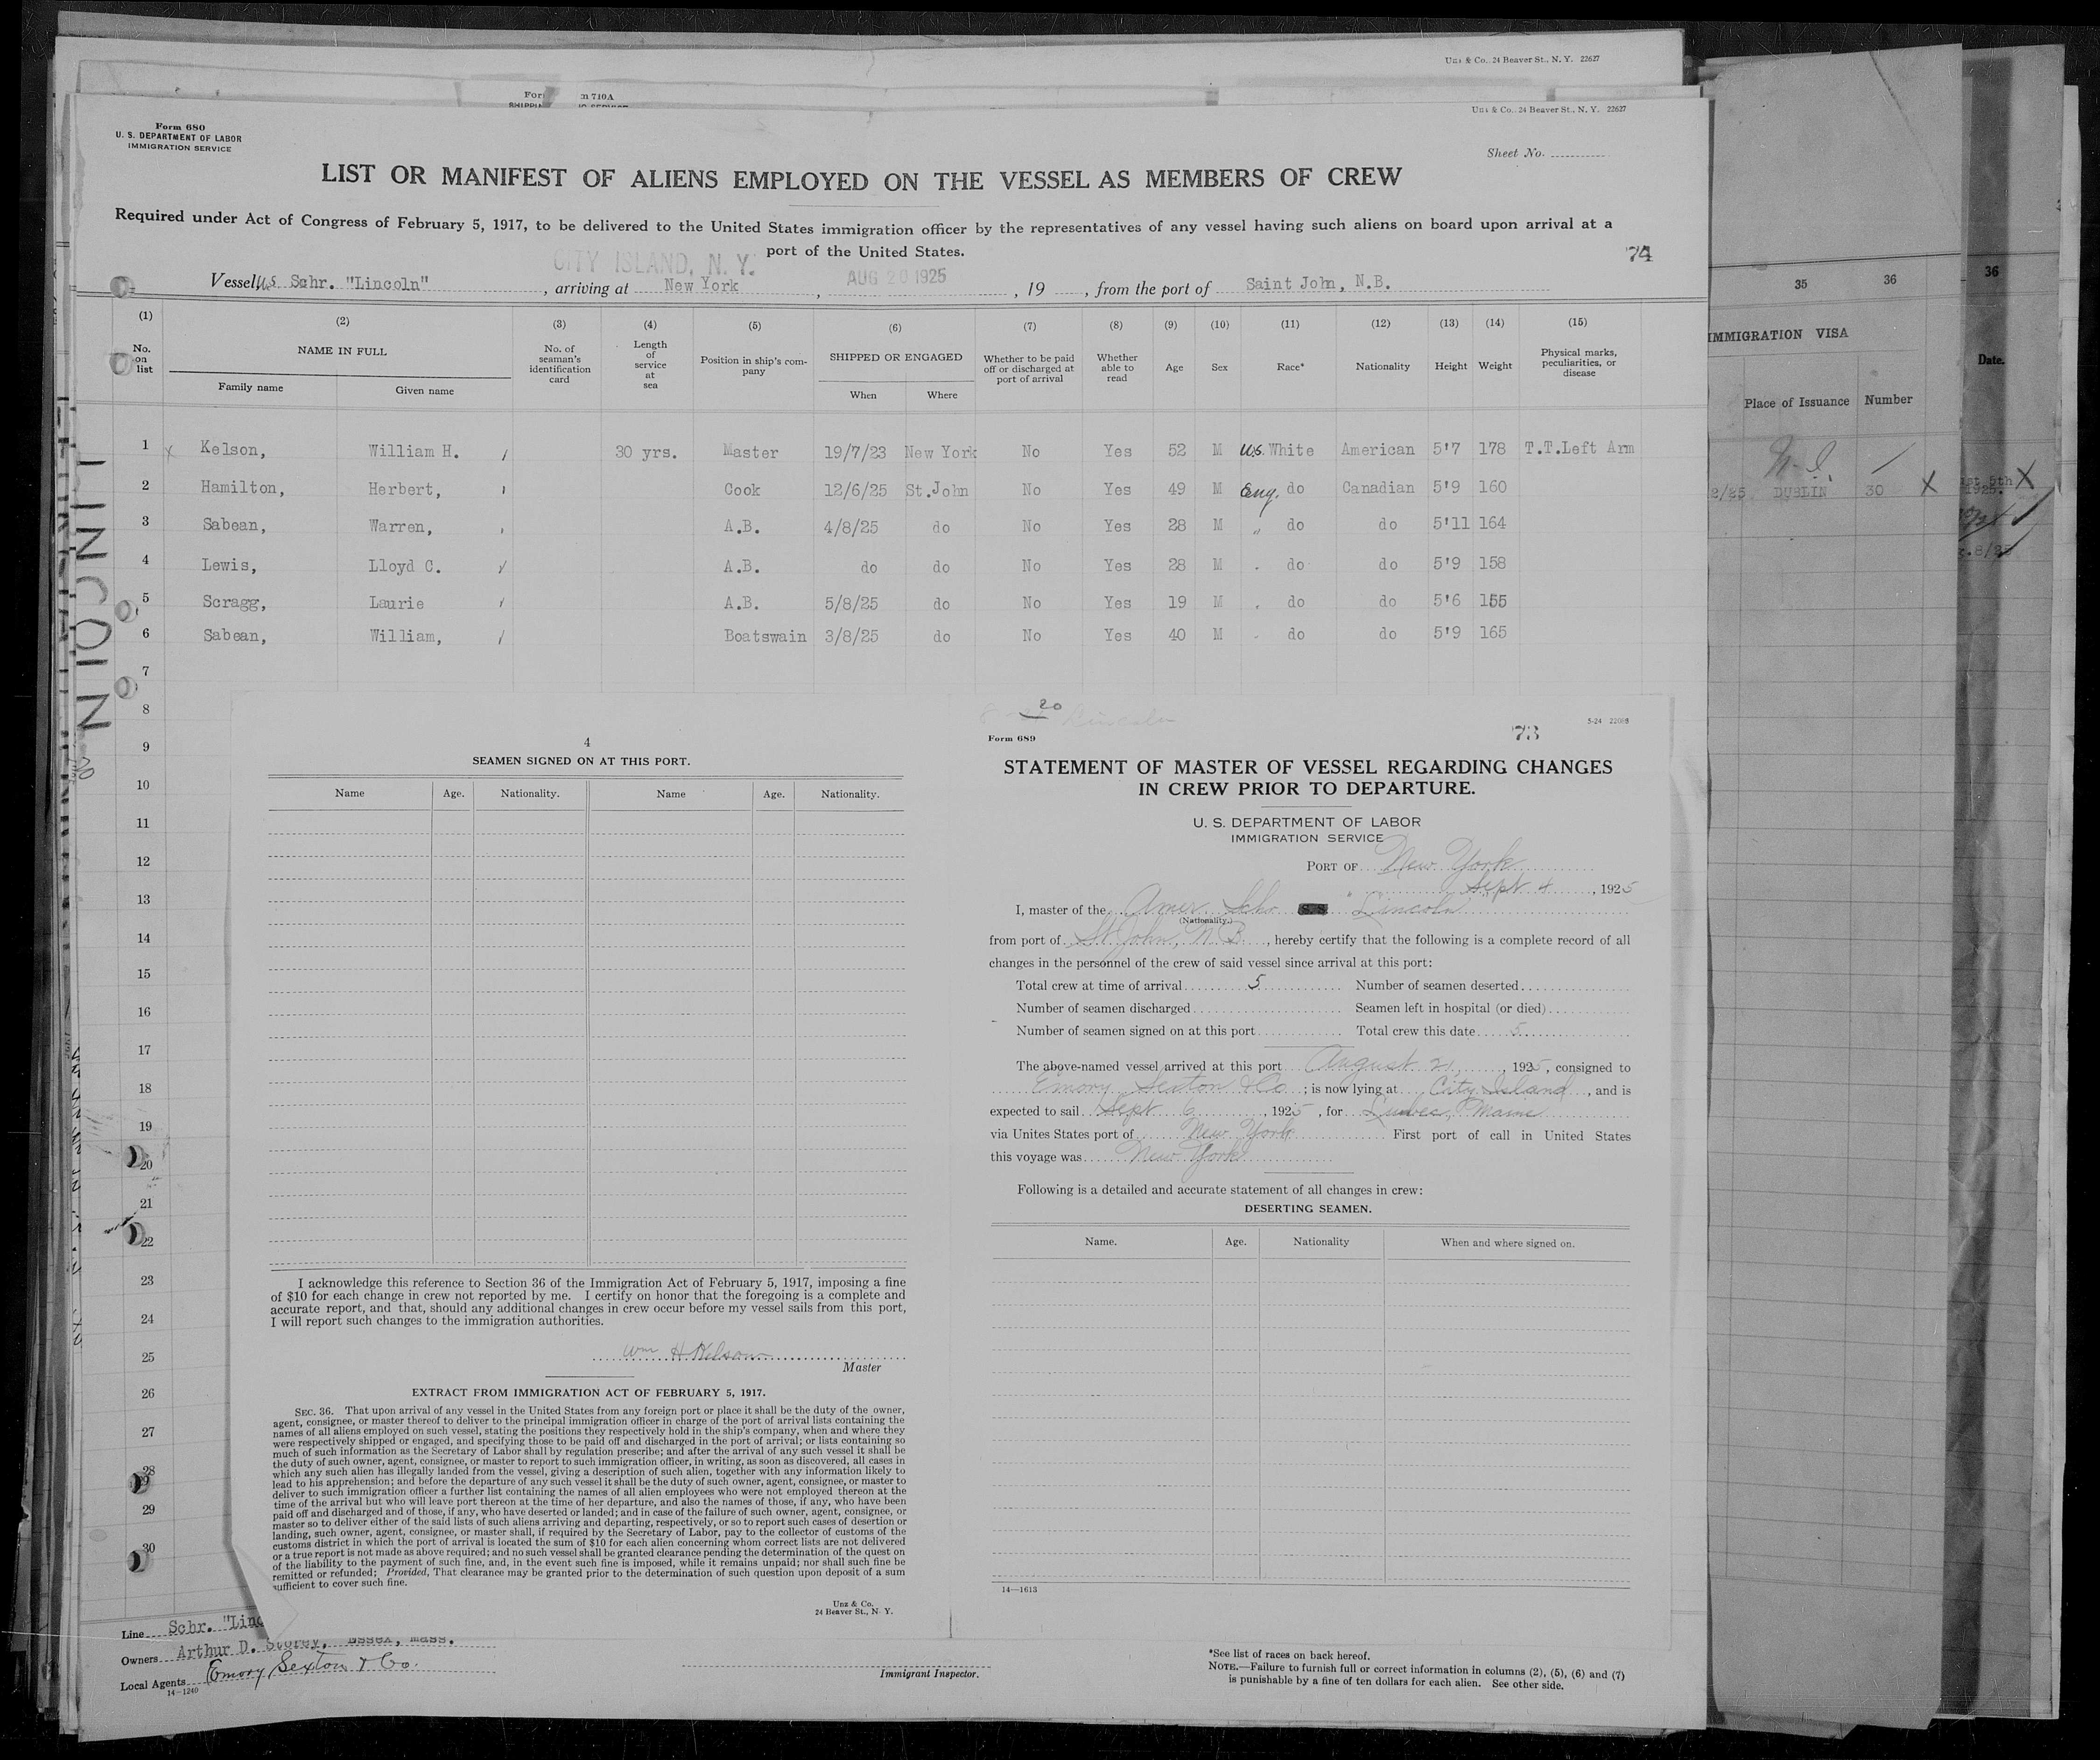 Unz & Co. 24 Beaver St., N. Y. 22627
Form 710A
Unz & Co. 24 Beaver St., N. Y. 22627
Form 680
U. S. DEPARTMENT OF LABOR
IMMIGRATION SERVICE
Sheet No.
LIST OR MANIFEST OF ALIENS EMPLOYED ON THE VESSEL AS MEMBERS OF CREW
Required under Act of Congress of February 5, 1917, to be delivered to the United States immigration officer by the representatives of any vessel having such aliens on board upon arrival at a
port of the United States.
74
CITY ISLAND, N. Y.
Vessel US Schr. "Lincoln", arriving at New York, AUG 20 1925, 19, from the port of Saint John, N.B.
(1) (2) (3) (4) (5) (6) (7) (8) (9) (10) (11) (12) (13) (14) (15)
No. on list NAME IN FULL No. of seaman's identification card Length of service at sea Position in ship's company SHIPPED OR ENGAGED Whether to be paid off or discharged at port of arrival Whether able to read Age Sex Race* Nationality Height Weight Physical marks, peculiarities, or disease
Family name Given name When Where
1 x Kelson, William H. / 30 yrs. Master 19/7/23 New York No Yes 52 M U.S. White American 5'7 178 T.T.Left Arm
2 Hamilton, Herbert, Cook 12/6/25 St.John No Yes 49 M Eng. do Canadian 5'9 160
3 Sabean, Warren, A.B. 4/8/25 do No Yes 28 M " do do 5'11 164
4 Lewis, Lloyd C. A.B. do do No Yes 28 M do do 5'9 158
5 Scragg, Laurie A.B. 5/8/25 do No Yes 19 M do do 5'6 155
6 Sabean, William, Boatswain 3/8/25 do No Yes 40 M do do 5'9 165
7
8
9
10
11
12
13
14
15
16
17
18
19
20
21
22
23
24
25
26
27
28
29
30
LINCOLN
4
SEAMEN SIGNED ON AT THIS PORT.
Name Age. Nationality. Name Age. Nationality.
I acknowledge this reference to Section 36 of the Immigration Act of February 5, 1917, imposing a fine
of $10 for each change in crew not reported by me. I certify on honor that the foregoing is a complete and
accurate report, and that, should any additional changes in crew occur before my vessel sails from this port,
I will report such changes to the immigration authorities.
Wm H Kelson
Master
EXTRACT FROM IMMIGRATION ACT OF FEBRUARY 5, 1917.
SEC. 36. That upon arrival of any vessel in the United States from any foreign port or place it shall be the duty of the owner,
agent, consignee, or master thereof to deliver to the principal immigration officer in charge of the port of arrival lists containing the
names of all aliens employed on such vessel, stating the positions they respectively hold in the ship's company, when and where they
were respectively shipped or engaged, and specifying those to be paid off and discharged in the port of arrival; or lists containing so
much of such information as the Secretary of Labor shall by regulation prescribe; and after the arrival of any such vessel it shall be
the duty of such owner, agent, consignee, or master to report to such immigration officer, in writing, as soon as discovered, all cases in
which any such alien has illegally landed from the vessel, giving a description of such alien, together with any information likely to
lead to his apprehension; and before the departure of any such vessel it shall be the duty of such owner, agent, consignee, or master to
deliver to such immigration officer a further list containing the names of all alien employees who were not employed thereon at the
time of the arrival but who will leave port thereon at the time of her departure, and also the names of those, if any, who have been
paid off and discharged and of those, if any, who have deserted or landed; and in case of the failure of such owner, agent, consignee, or
master so to deliver either of the said lists of such aliens arriving and departing, respectively, or so to report such cases of desertion or
landing, such owner, agent, consignee, or master shall, if required by the Secretary of Labor, pay to the collector of customs of the
customs district in which the port of arrival is located the sum of $10 for each alien concerning whom correct lists are not delivered
or a true report is not made as above required; and no such vessel shall be granted clearance pending the determination of the quest on
of the liability to the payment of such fine, and, in the event such fine is imposed, while it remains unpaid; nor shall such fine be
remitted or refunded; Provided, That clearance may be granted prior to the determination of such question upon deposit of a sum
sufficient to cover such fine.
Unz & Co.
24 Beaver St., N. Y.
20
Lincoln
Form 689
73
5-24 22088
STATEMENT OF MASTER OF VESSEL REGARDING CHANGES
IN CREW PRIOR TO DEPARTURE.
U. S. DEPARTMENT OF LABOR
IMMIGRATION SERVICE
PORT OF New York
Sept 4, 1925
I, master of the Amer. Schr "Lincoln"
(Nationality.)
from port of St John, N.B., hereby certify that the following is a complete record of all
changes in the personnel of the crew of said vessel since arrival at this port:
Total crew at time of arrival 5 Number of seamen deserted
Number of seamen discharged Seamen left in hospital (or died)
Number of seamen signed on at this port Total crew this date 5
The above-named vessel arrived at this port August 21, 1925, consigned to
Emory Sexton & Co; is now lying at City Island, and is
expected to sail Sept 6, 1925, for Lubec, Maine
via Unites States port of New York First port of call in United States
this voyage was New York
Following is a detailed and accurate statement of all changes in crew:
DESERTING SEAMEN.
Name. Age. Nationality When and where signed on.
14—1613
Line Schr. "Linc
Owners Arthur D. Storey, Essex, Mass.
Local Agents Emory Sexton & Co.
14-1240
Immigrant Inspector.
*See list of races on back hereof.
NOTE.—Failure to furnish full or correct information in columns (2), (5), (6) and (7)
is punishable by a fine of ten dollars for each alien. See other side.
35 36
IMMIGRATION VISA
Place of Issuance Number
2/25 DUBLIN 30 X
36
Date.
5th
1925.
8/25